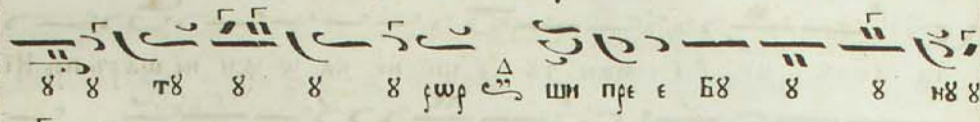 ꙋ ꙋ тꙋ ꙋ ꙋ ꙋ рѡр ши пре е Бꙋ ꙋ ꙋ нꙋ ꙋ